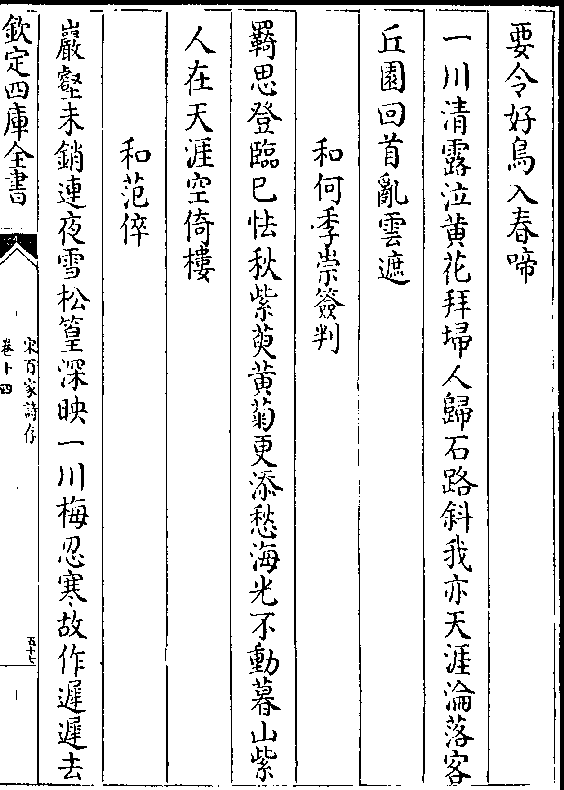 要令好鳥入春啼
一川清露泣黄花拜埽人歸石路斜我亦天涯淪落客
丘園回首亂雲遮
和何季崇簽判
羇思登臨已怯秋紫萸黄菊更添愁海光不動暮山紫
人在天涯空倚樓
和范倅
巖壑未銷連夜雪松篁深映一川梅忍寒故作遲遲去
欽定四庫全書
宋百家詩存
卷十四
五十七